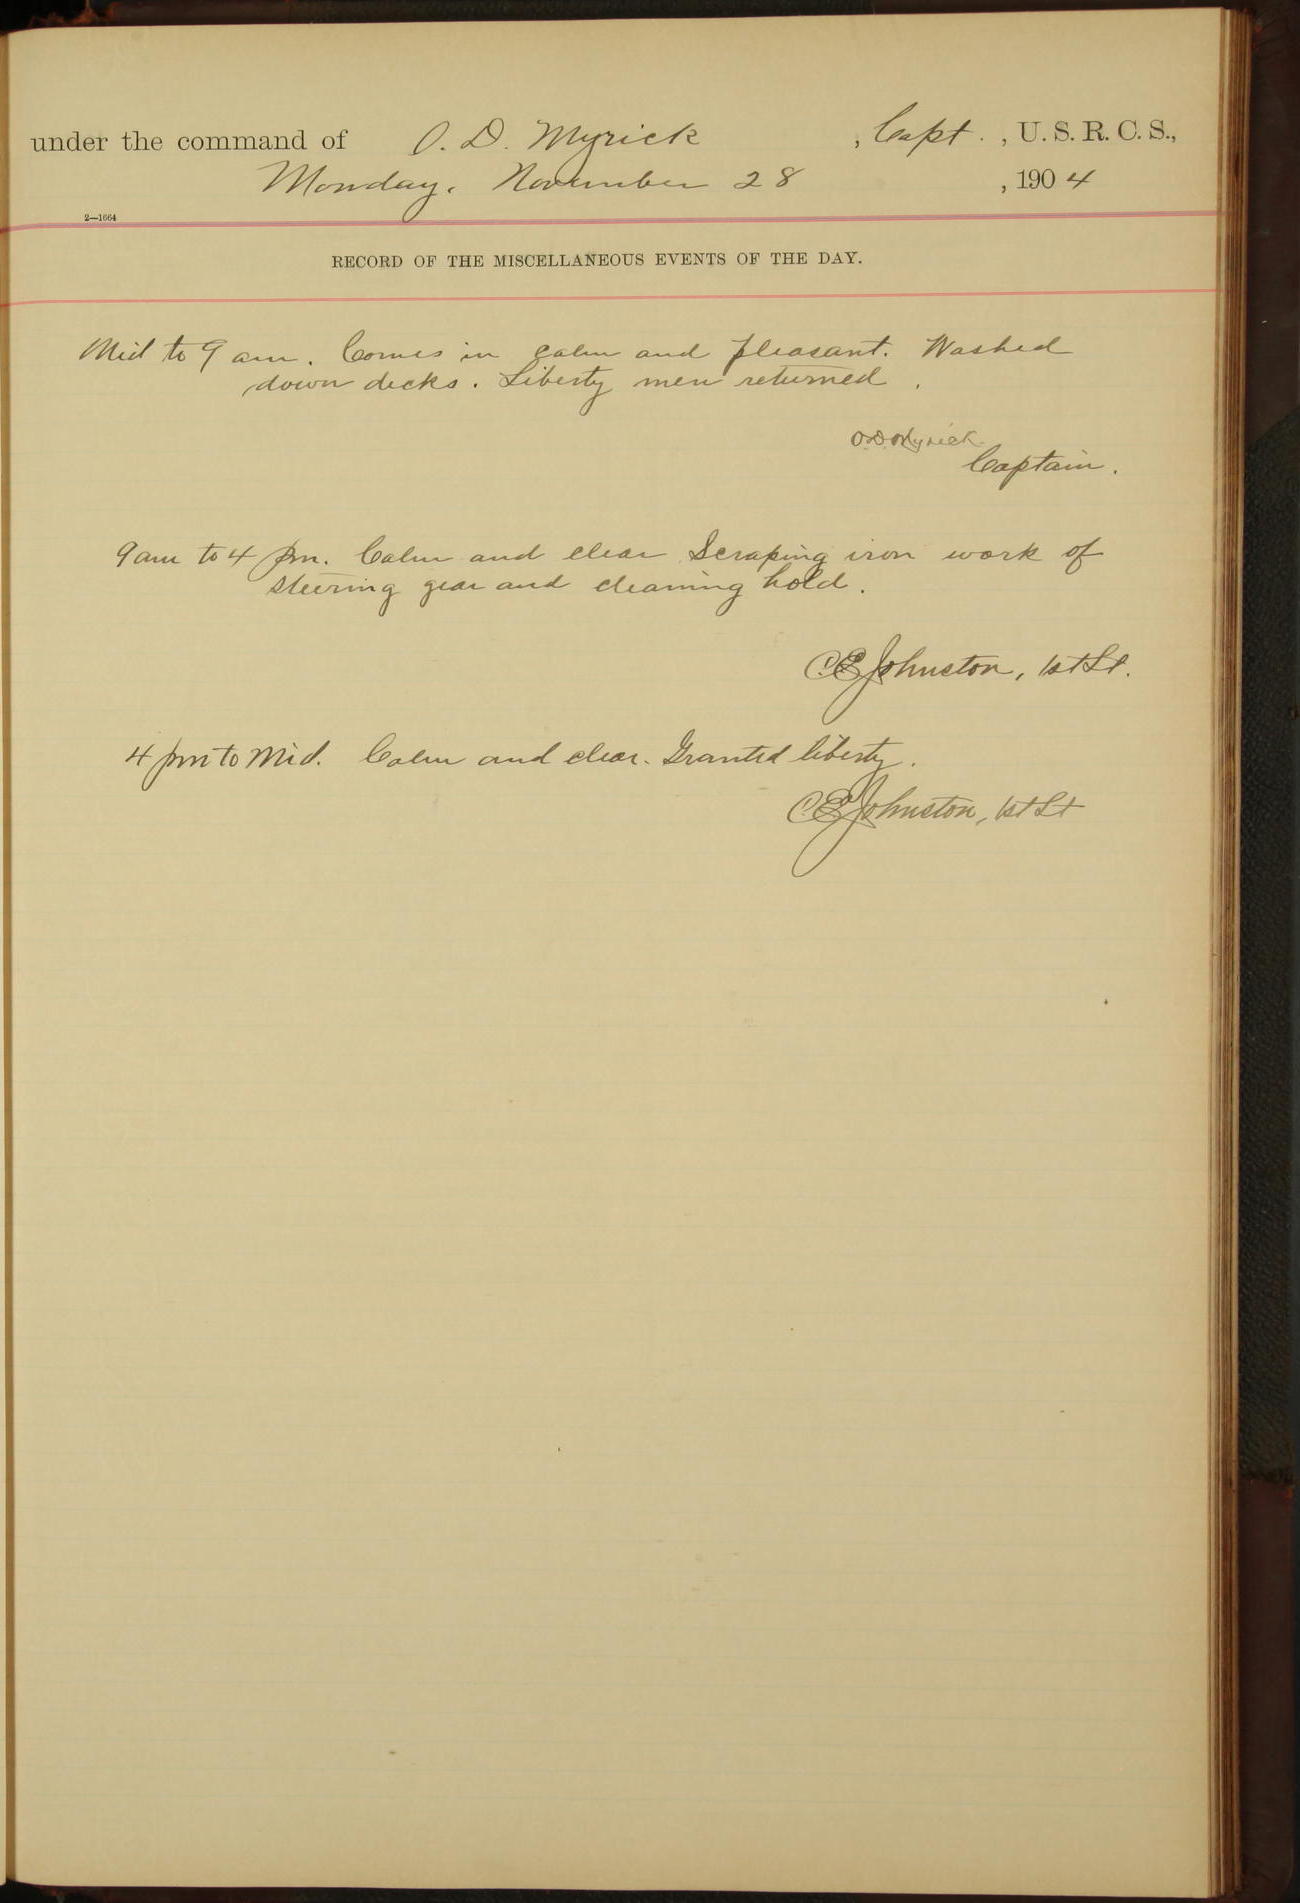 under the command of O. D. Myrick , Capt. , U. S. R. C. S.,
Monday, November 28 , 1904
2—1664
RECORD OF THE MISCELLANEOUS EVENTS OF THE DAY.
Mid to 9 am. Comes in calm and pleasant. Washed
down decks. Liberty men returned.
O.D. Myrick
Captain.
9 am to 4 pm. Calm and clear Scraping iron work of
steering gear and cleaning hold.
C.E. Johnston, 1st Lt.
4 pm to Mid. Calm and clear. Granted liberty.
C.E. Johnston, 1st Lt